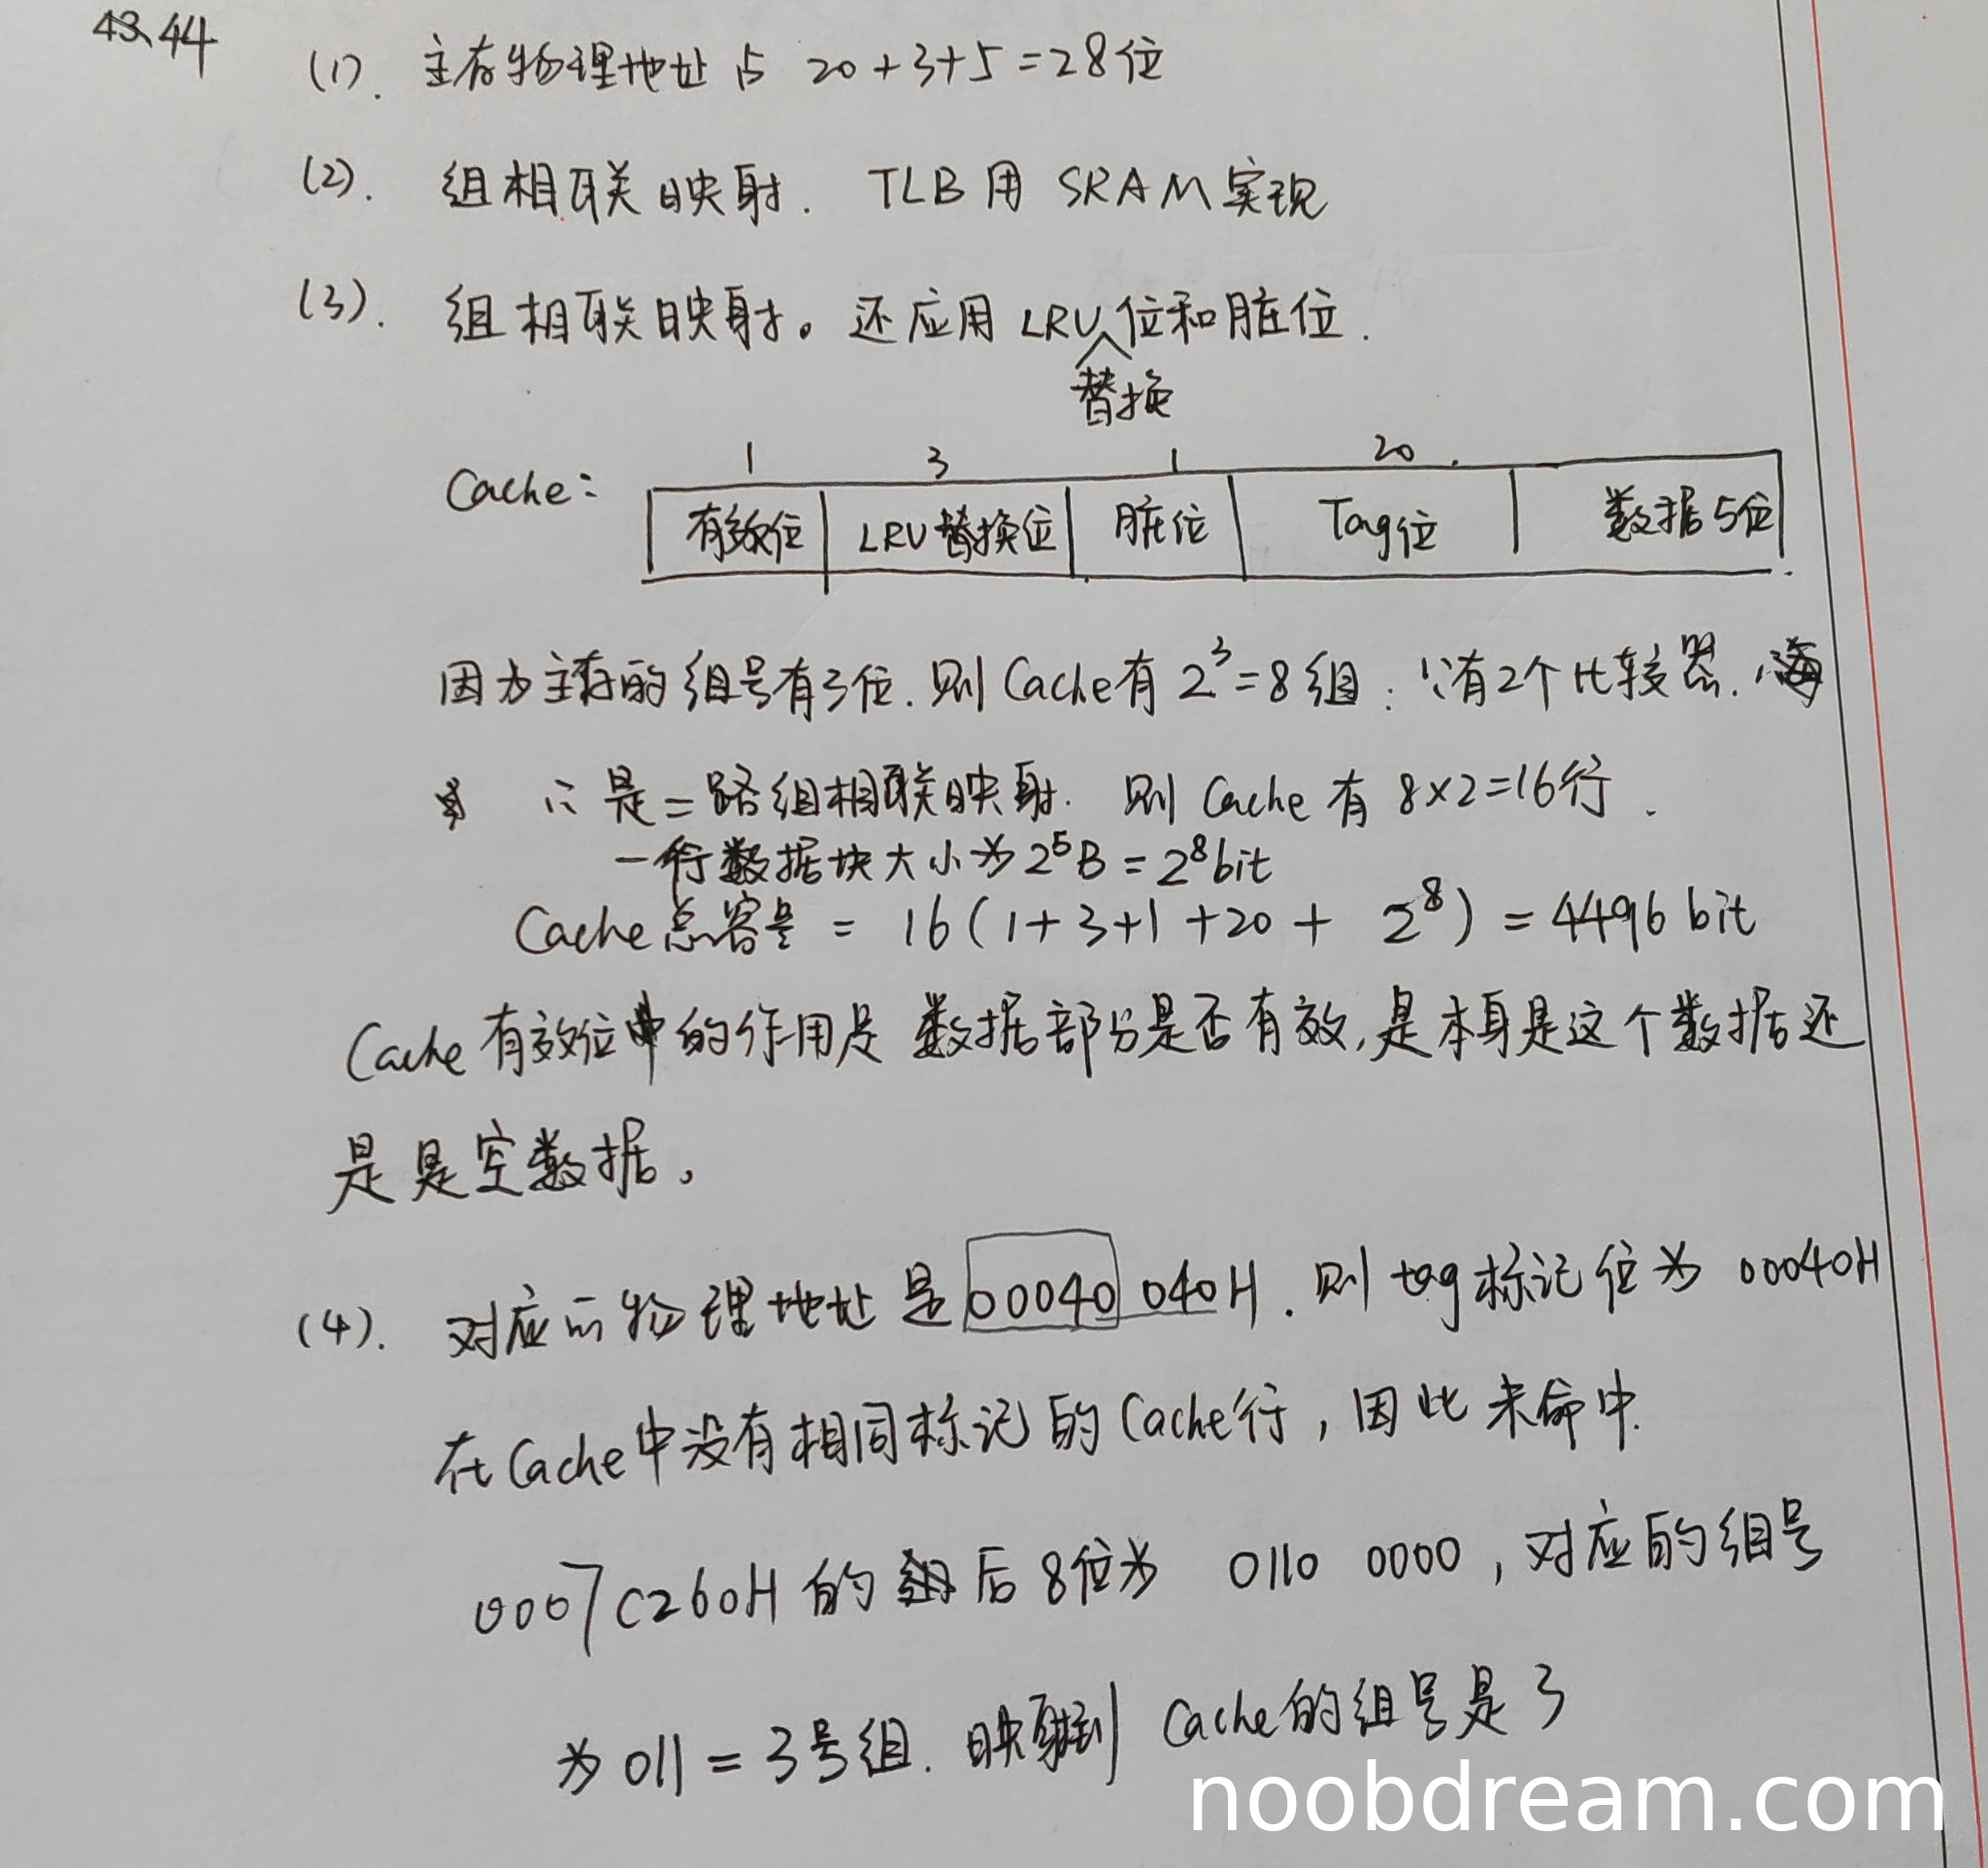 43、44
(1). 主存物理地址占 20+3+5=28位
(2). 组相联映射. TLB用 SRAM实现
(3). 组相联映射。还应用LRU位和脏位.
替换
1 3 1 20
Cache: 有效位 LRU替换位 脏位 Tag位 数据5位
因为主存的组号有3位.则Cache有2³=8组. ∵有2个比较器.
∴是二路组相联映射. 则Cache有 8×2=16行.
一行数据块大小为2⁵B=2⁸bit
Cache总容量 = 16(1+3+1+20+ 2⁸) = 4496 bit
Cache有效位的作用是 数据部分是否有效,是本身是这个数据还
是是空数据。
(4). 对应的物理地址是00040 040H. 则tag标记位为 00040H
在Cache中没有相同标记的Cache行,因此未命中.
0007C260H的后8位为 0110 0000,对应的组号
为011=3号组. 映射到 Cache的组号是3
noobdream.com